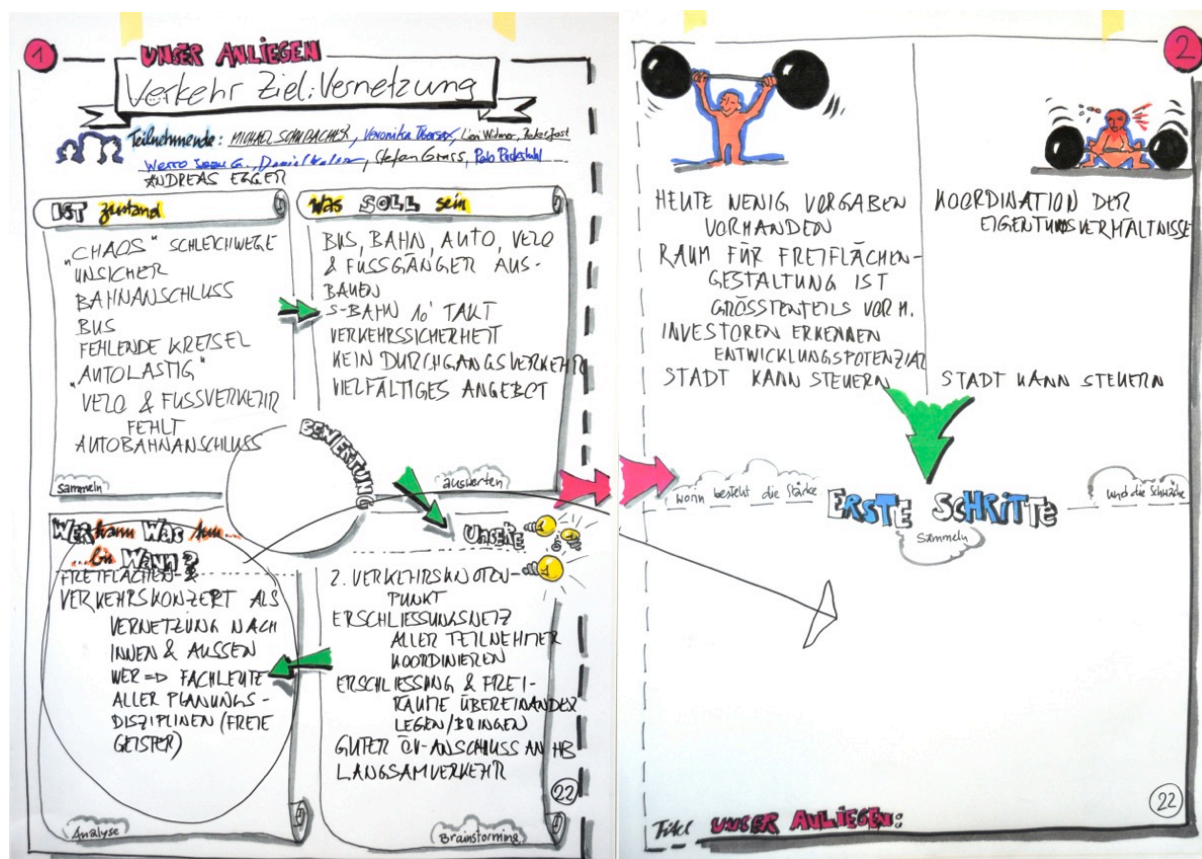 1
UNSER ANLIEGEN
Verkehr Ziel: Vernetzung
Teilnehmende: MICHAEL SCHUBACHER, Veronika
Stefan Gross,
ANDREAS EGGER
IST zustand
„CHAOS" SCHLEICHWEGE
UNSICHER
BAHNANSCHLUSS
BUS
FEHLENDE KREISEL
„AUTOLASTIG"
VELO & FUSSVERKEHR
FEHLT
AUTOBAHNANSCHLUSS
Sammeln
Was SOLL sein
BUS, BAHN, AUTO, VELO
& FUSSGÄNGER AUS-
BAUEN
S-BAHN 10' TAKT
VERKEHRSSICHERHEIT
KEIN DURCHGANGSVERKEHR
VIELFÄLTIGES ANGEBOT
auswerten
BEWERTUNG
WER kann WAS tun...
...bis WANN?
FREIFLÄCHEN-&
VERKEHRSKONZEPT ALS
VERNETZUNG NACH
INNEN & AUSSEN
WER => FACHLEUTE
ALLER PLANUNGS-
DISZIPLINEN (FREIE
GEISTER)
Analyse
UNSERE
2. VERKEHRSKNOTEN-
PUNKT
ERSCHLIESSUNGSNETZ
ALLER TEILNEHMER
KOORDINIEREN
ERSCHLIESSUNG & FREI-
RÄUME ÜBEREINANDER
LEGEN/BRINGEN
GUTER ÖV-ANSCHLUSS AN HB
LANGSAMVERKEHR
22
Brainstorming
2
HEUTE WENIG VORGABEN
VORHANDEN
RAUM FÜR FREIFLÄCHEN-
GESTALTUNG IST
GRÖSSTENTEILS VORH.
INVESTOREN ERKENNEN
ENTWICKLUNGSPOTENZIAL
STADT KANN STEUERN
KOORDINATION DER
EIGENTUMSVERHÄLTNISSE
STADT KANN STEUERN
worin besteht die Stärke
und die Schwäche
ERSTE SCHRITTE
Sammeln
22
Titel UNSER ANLIEGEN: